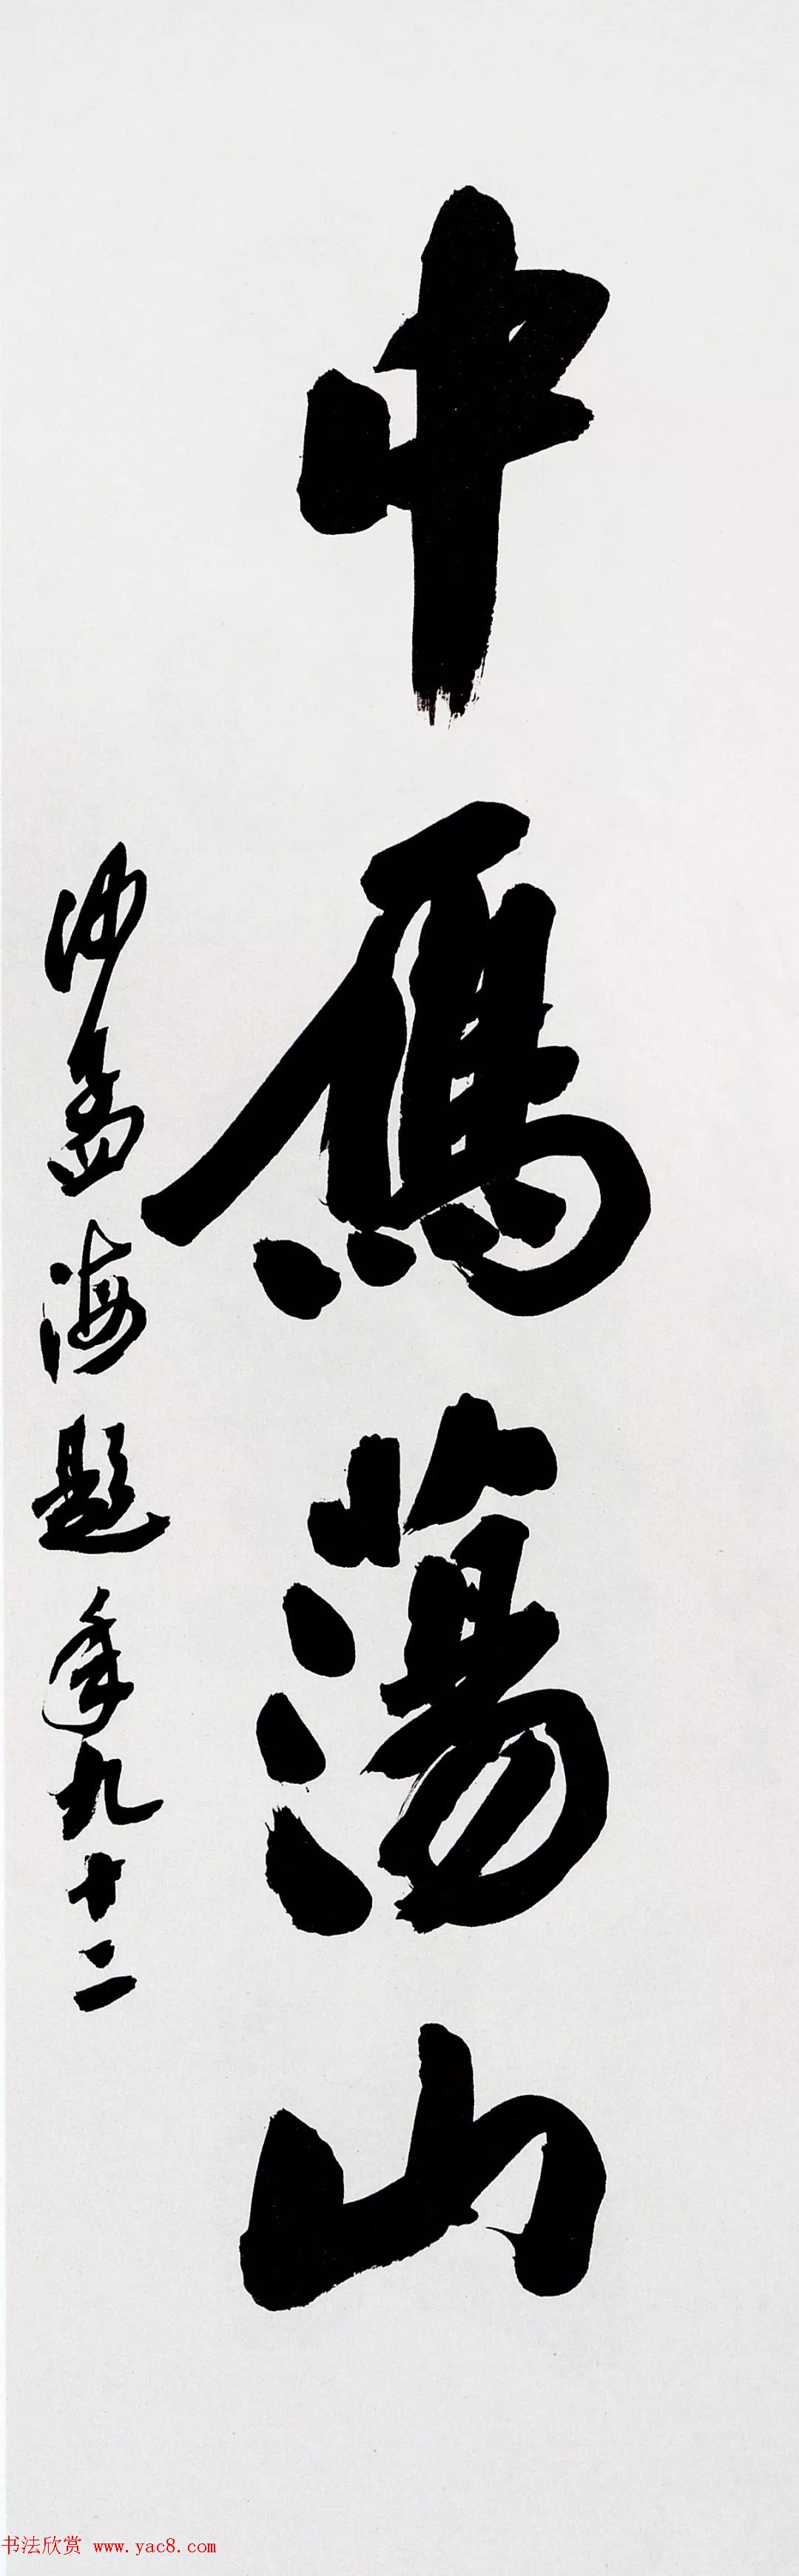 中雁蕩山
沙孟海題年九十二
书法欣赏 www.yac8.com